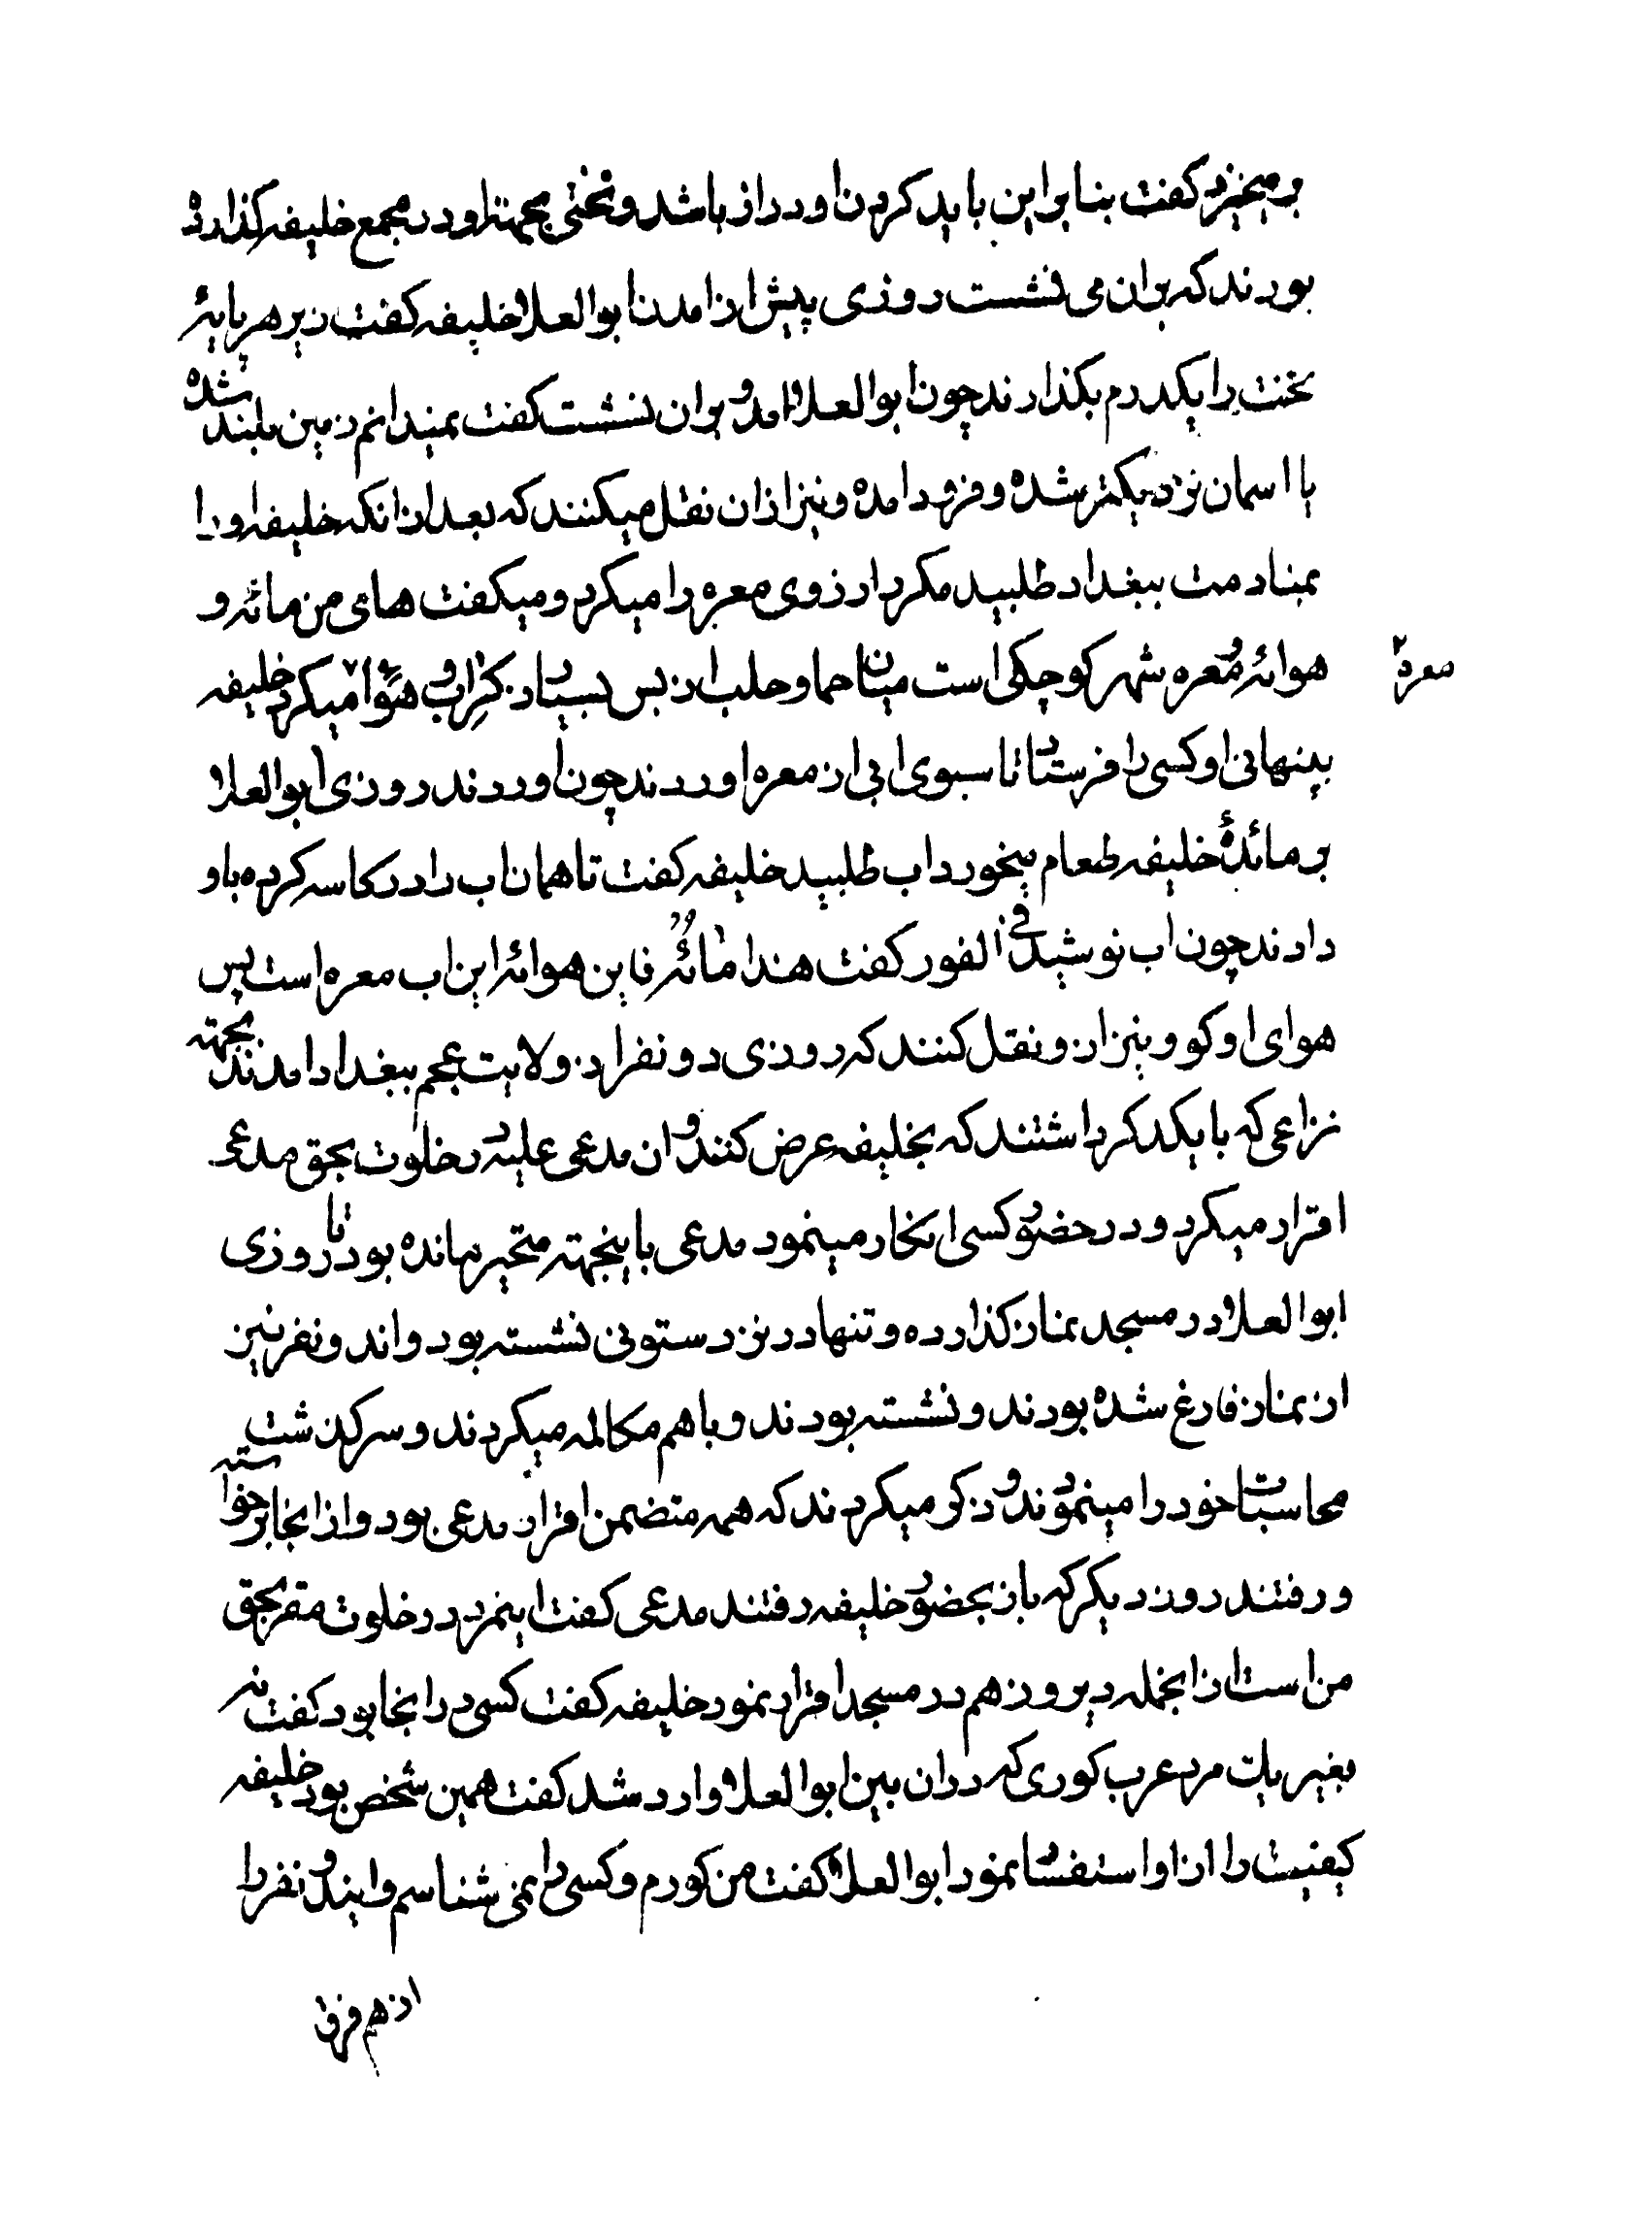 برمیخیزد کفت بنا براین باید کردن او دراز باشد و تختی بجهته او در مجمع خلیفه کذارده
بودند که بران می نشست روزی پیش از امدن ابوالعلا خلیفه کفت زیر هر پایهٔ
تخت را یکدرم بکذارند چون ابوالعلا امد و بران نشست کفت نمیدانم زمین بلند شده
یا اسمان نزدیکتر شده و فرود امده و نیز ازان نقل میکنند که بعد از انکه خلیفه او را
بمنادمت ببغداد طلبید مکرر ارزوی معره را میکرد و میکفت های من مائه و
هوائه و معره شهر کوچکی است میان حما و حلب از بس بسیار ذکر اب و هوا میکرد خلیفه
معره ۲
بپنهانی او کسی را فرستاد تا سبوی ابی از معره اوردند چون اوردند روزی ابوالعلا
بر مائدهٔ خلیفه طعام میخورد اب طلبید خلیفه کفت تا همان اب را در کاسه کرده باو
دادند چون اب نوشید فی الفور کفت هذا مائه فاین هوائه این اب معره است پس
هوای او کو و نیز از و نقل کنند که روزی دو نفر از ولایت عجم ببغداد امدند بجهته
نزاعی که با یکدکر داشتند که بخلیفه عرض کنند و ان مدعی علیه در خلوت بحق مدعی
اقرار میکرد و در حضور کسی انکار مینمود مدعی باینجهته متحیر مانده بود تا روزی
ابوالعلا در مسجد نماز کذارده و تنها در نزد ستونی نشسته بود و اندو نفر نیز
از نماز فارغ شده بودند و نشسته بودند و با هم مکالمه میکردند و سرکذشت
محاسبات خود را مینمودند و ذکر میکردند که همه متضمن اقرار مدعی بود و از انجا برخواسته
و رفتند روز دیکر که باز بحضور خلیفه رفتند مدعی کفت اینمرد در خلوت مقر بحق
من است از انجمله دیروز هم در مسجد اقرار نمود خلیفه کفت کسی در انجا بود کفت نه
بغیر یک مرد عرب کوری که دران بین ابوالعلا وارد شد کفت همین شخص بود خلیفه
کیفیت را از او استفسار نمود ابوالعلا کفت من کورم و کسی را نمی شناسم و ایندو نفر را
از هم فرق